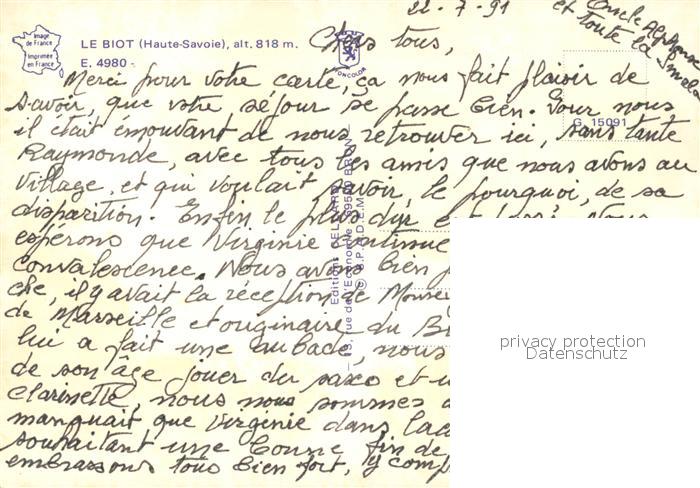 22-7-91
Oncle Alphonse
et toute la famille
Image de France
Imprimée en France
LE BIOT (Haute-Savoie), alt. 818 m.
E. 4980 -
G. 15091
Chers tous,
Merci pour votre carte, ça nous fait plaisir de
savoir, que votre séjour se passe bien. Pour nous
il était émouvant de nous retrouver ici, sans tante
Raymonde, avec tous les amis que nous avons au
village, et qui voulait savoir, le pourquoi, de sa
disparition. Enfin le plus dur est passé. Nous
espérons que Virginie continue
convalescence. Nous avons bien
che, il y avait la réception de
de Marseille et originaire du
lui a fait une aubade, nous
de son âge jouer du saxo et
clarinette, nous nous sommes
manquait que Virginie dans
souhaitant une bonne fin de
embrassons tous bien fort, y
privacy protection
Datenschutz